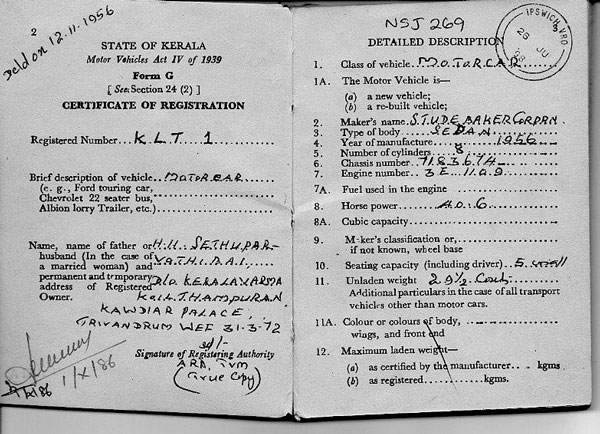 2
Deld on 12.11.1956
STATE OF KERALA
Motor Vehicles Act IV of 1939
Form G
[ See Section 24 (2) ]
CERTIFICATE OF REGISTRATION
Registered Number...K.L.T. 1
Brief description of vehicle...MOTORCAR
(e. g., Ford touring car,
Chevrolet 22 seater bus,
Albion lorry Trailer, etc.)
Name, name of father or H.H. SETHUPAR-
husband (In the case of VATHI.BAI.
a married woman) and
permanent and temporary D/o KERALAVARMA
address of Registered
Owner. KOIL.THAMPURAN
KAWDIAR PALACE,
TRIVANDRUM WEF 31-3-72
sd/-
Signature of Registering Authority
ARA, TVM
(True Copy)
1/X/86
NSJ 269
IPSWICH VRO
DETAILED DESCRIPTION
1. Class of vehicle MOTORCAR
1A. The Motor Vehicle is—
(a) a new vehicle;
(b) a re-built vehicle;
2. Maker's name STUDEBAKER
3. Type of body SEDAN
4. Year of manufacture 1956
5. Number of cylinders 8
6. Chassis number 7183674
7. Engine number 3E 1109
7A. Fuel used in the engine
8. Horse power 40.6
8A. Cubic capacity
9. Maker's classification or,
if not known, wheel base
10. Seating capacity (including driver) 5
11. Unladen weight 29½
Additional particulars in the case of all transport
vehicles other than motor cars.
11A. Colour or colours of body,
wings, and front end
12. Maximum laden weight—
(a) as certified by the manufacturer .. kgms
(b) as registered kgms.